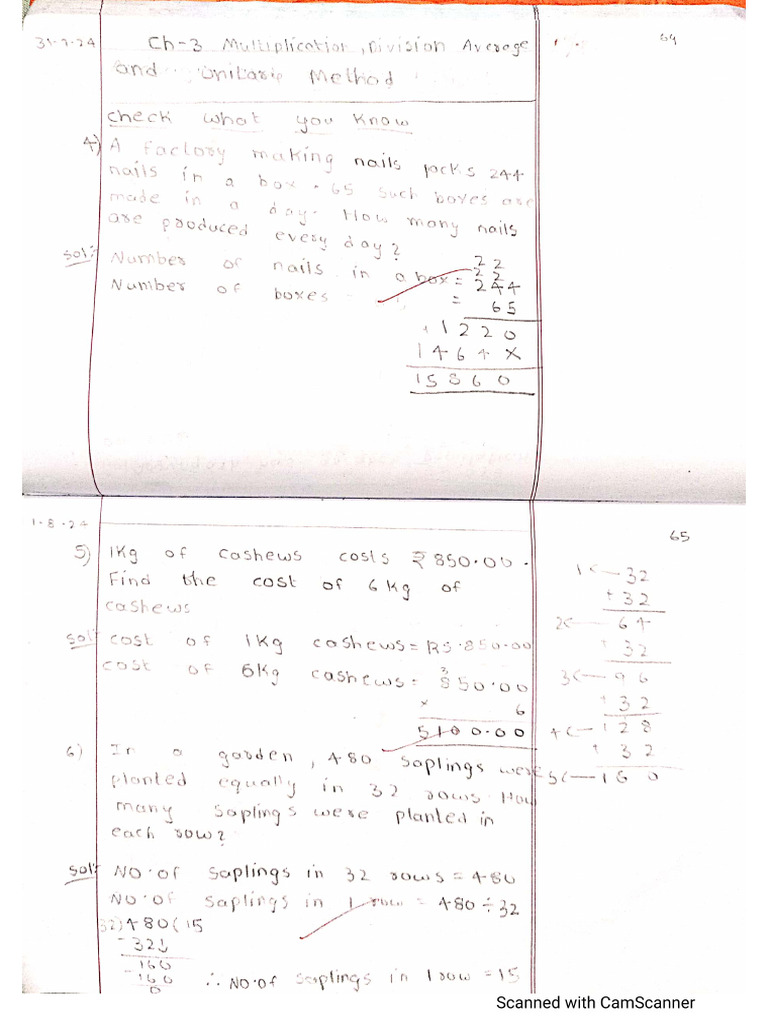 31-7-24 Ch-3 Multiplication, Division Average 64
and Unitary Method
check what you know
4) A factory making nails packs 244
nails in a box. 65 such boxes are
made in a day. How many nails
are produced every day?
sol:- Number of nails in a box = 244
22
22
Number of boxes = 65
+ 1 2 2 0
1 4 6 4 X
1 5 8 6 0
1-8-24 65
5) 1Kg of cashews costs ₹850.00.
Find the cost of 6 Kg of
cashews
sol:- cost of 1Kg cashews = Rs.850.00
cost of 6Kg cashews = 850.00
3
× 6
5100.00
6) In a garden, 480 saplings were
planted equally in 32 rows. How
many saplings were planted in
each row?
sol:- No. of saplings in 32 rows = 480
No. of saplings in 1 row = 480 ÷ 32
32)480(15
-32↓
160
-160
0
∴ No. of saplings in 1 row = 15
1<— 32
+ 32
2<— 64
+ 32
3<— 96
+ 32
4<— 128
+ 32
5<— 160
Scanned with CamScanner